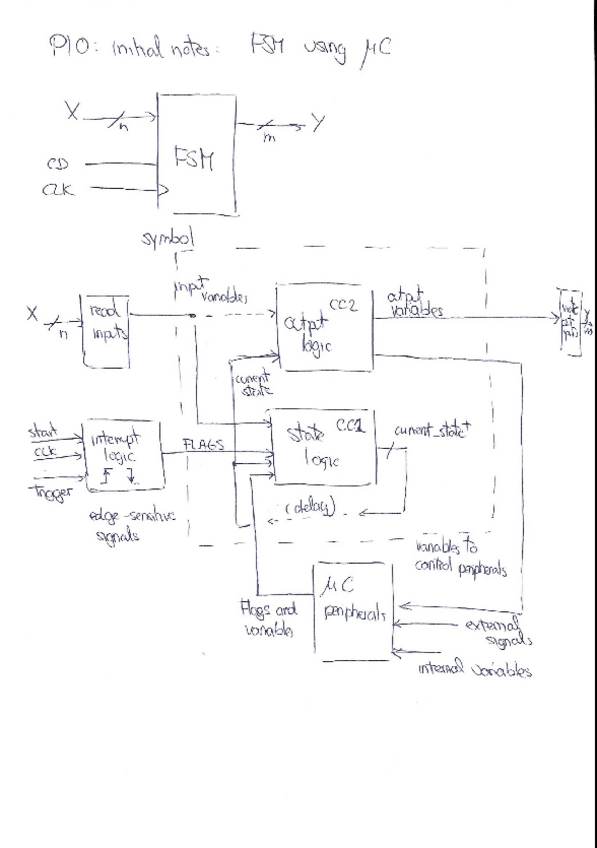 P10: initial notes: FSM using μC
X
n
FSM
m
Y
CD
CLK
symbol
X
n
read
inputs
input
variables
CC2
output
logic
output
variables
write
pins
Y
m
current
state
start
CLK
trigger
interrupt
logic
FLAGS
edge-sensitive
signals
state
CC1
logic
current_state+
(delay)
variables to
control peripherals
Flags and
variables
μC
peripherals
external
signals
internal variables